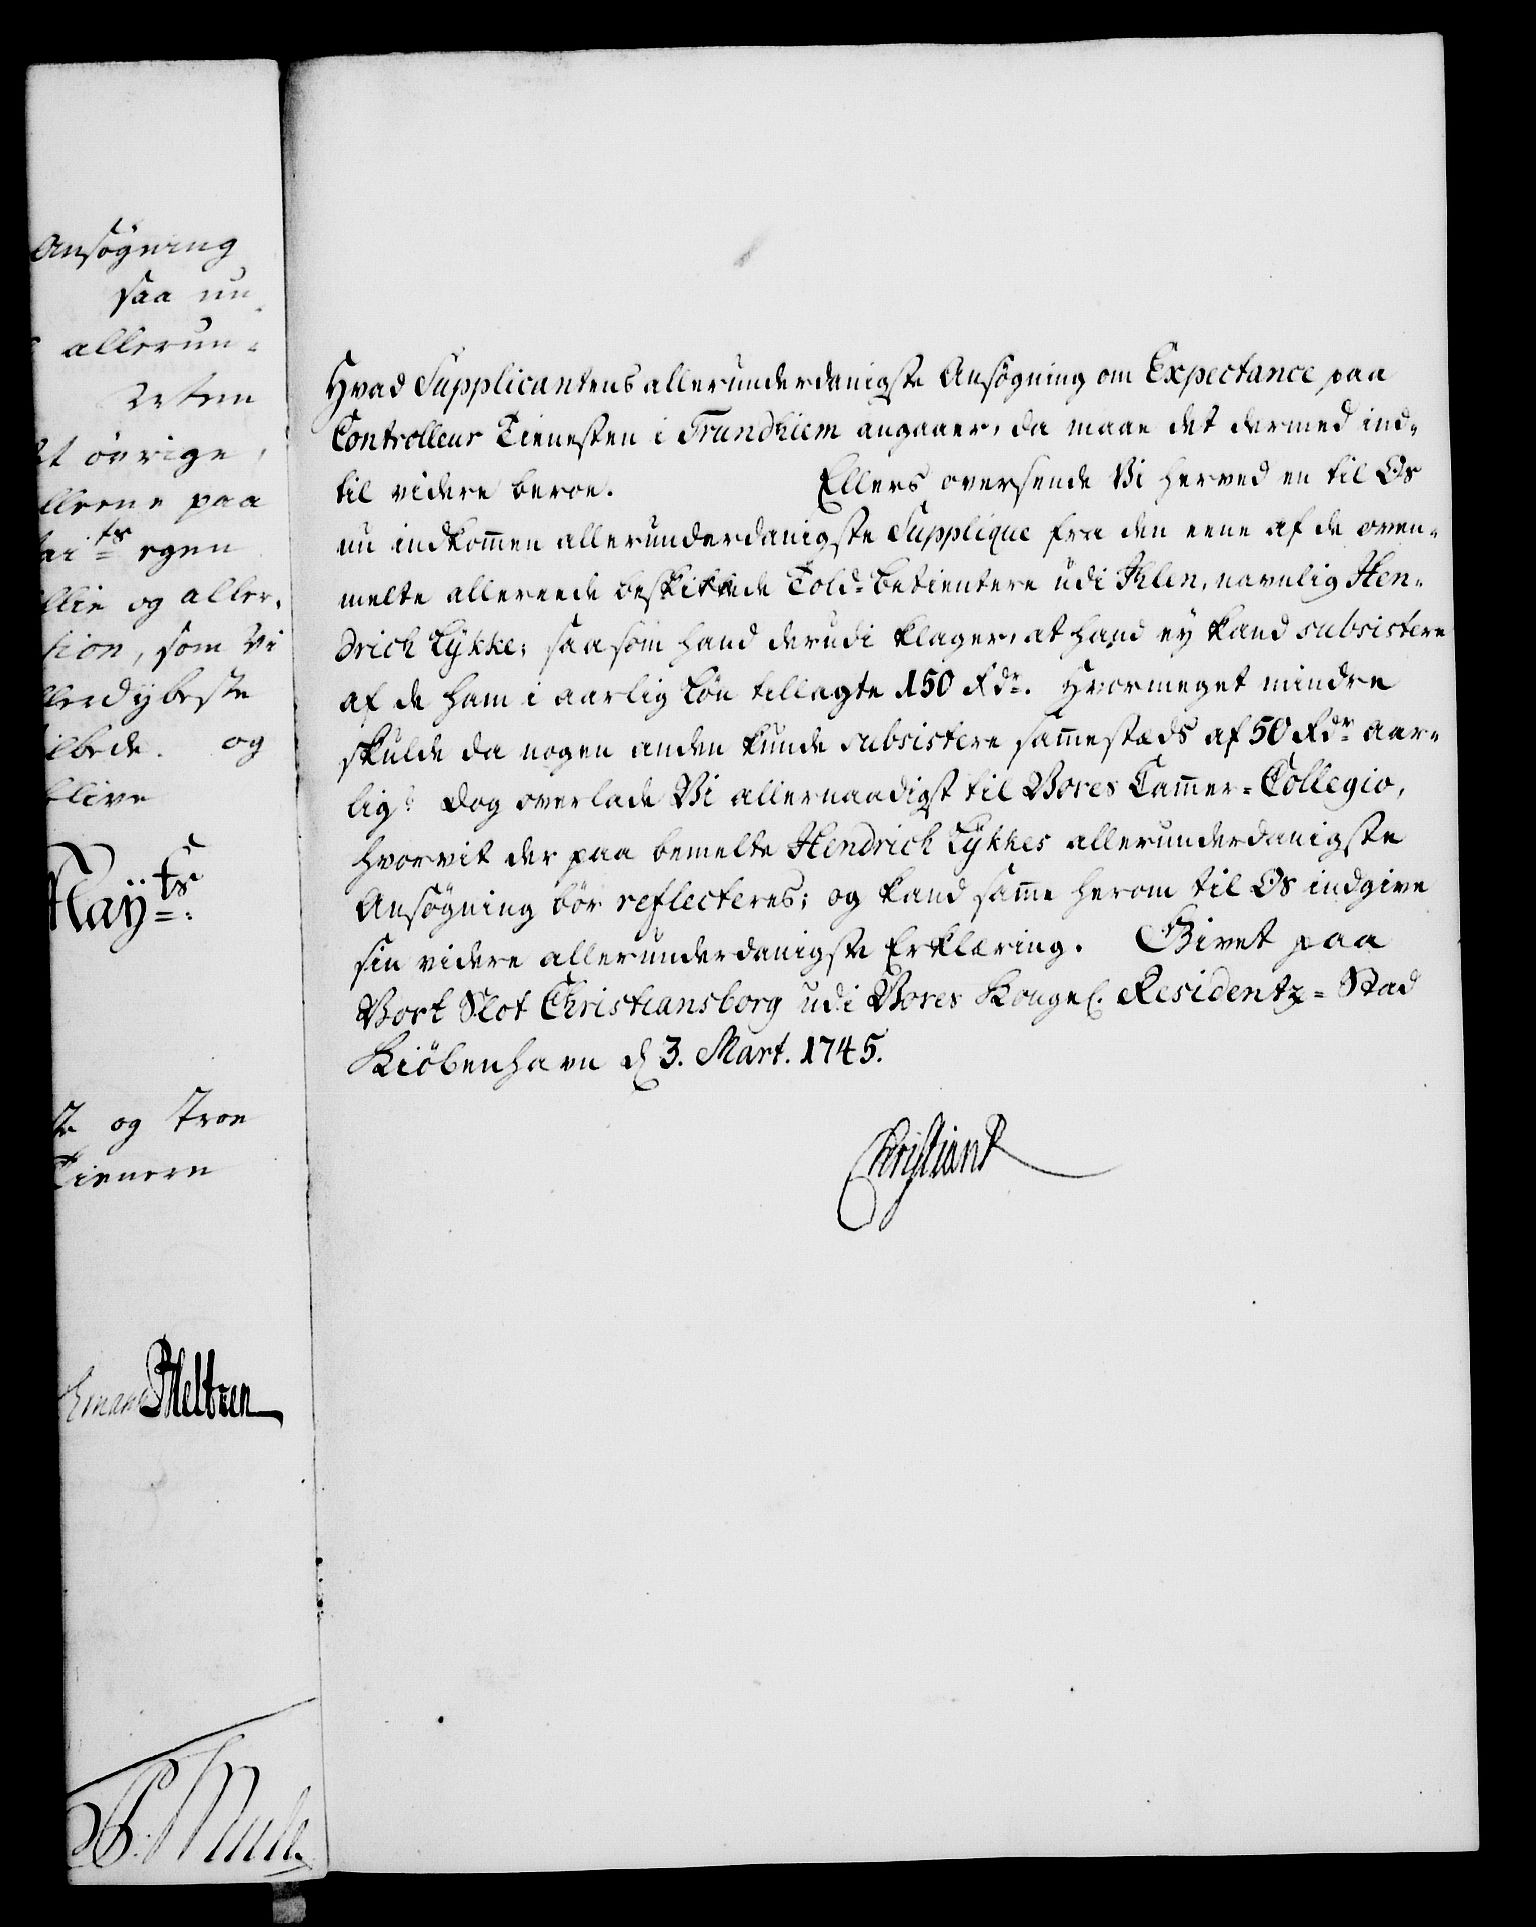 Ansøgning
saa nu
allerun-
øvrige,
llerne paa
ts egen
llie og aller-
tion, som Vi
llerdybeste
og
blive
May.ts
og troe
Tienere
Hvad Supplicantens allerunderdanigste Ansøgning om Expectance paa
Controlleur Tienesten i Trundhiem angaaer, da maae det dermed ind-
til videre beroe. Ellers oversende Vi herved en til Os
nu indkom̅en allerunderdanigste Supplique fra den eene af de oven-
melte allereede beskikkede Told-Betientere udi Ihlen, navnlig Hen-
drich Lykke; saasom hand derudi klager, at hand ey kand subsistere
af de ham i aarlig Løn tillagte 150 Rdr. Hvormeget mindre
skulde da nogen anden kunde subsistere sam̅estæds af 50 Rdr aar-
lig? Dog overlade Vi allernaadigst til Vores Cam̅er-Collegio,
hvorvit der paa bemelte Hendrich Lykkes allerunderdanigste
Ansøgning bør reflecteres; og kand sam̅e herom til Os indgive
sin videre allerunderdanigste Erklæring. Givet paa
Vort Slot Christiansborg udi Vores Kongel. Residentz-Stad
Kiøbenhavn d 3. Mart. 1745.
Christian R